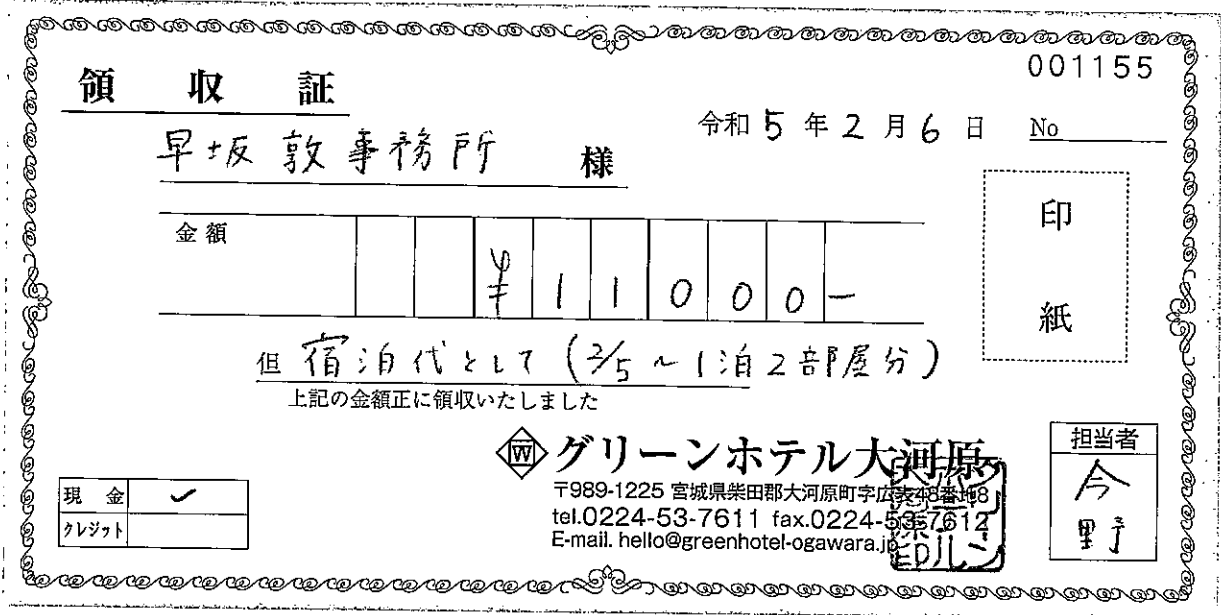 001155
領収証
令和5年2月6日 No
早坂敦事務所 様
金額 ¥11000-
印紙
但 宿泊代として(2/5~1泊2部屋分)
上記の金額正に領収いたしました
グリーンホテル大河原
〒989-1225 宮城県柴田郡大河原町字広表48番地8
tel.0224-53-7611 fax.0224-53-7612
E-mail. hello@greenhotel-ogawara.jp
担当者
今野
現金 ✓
クレジット